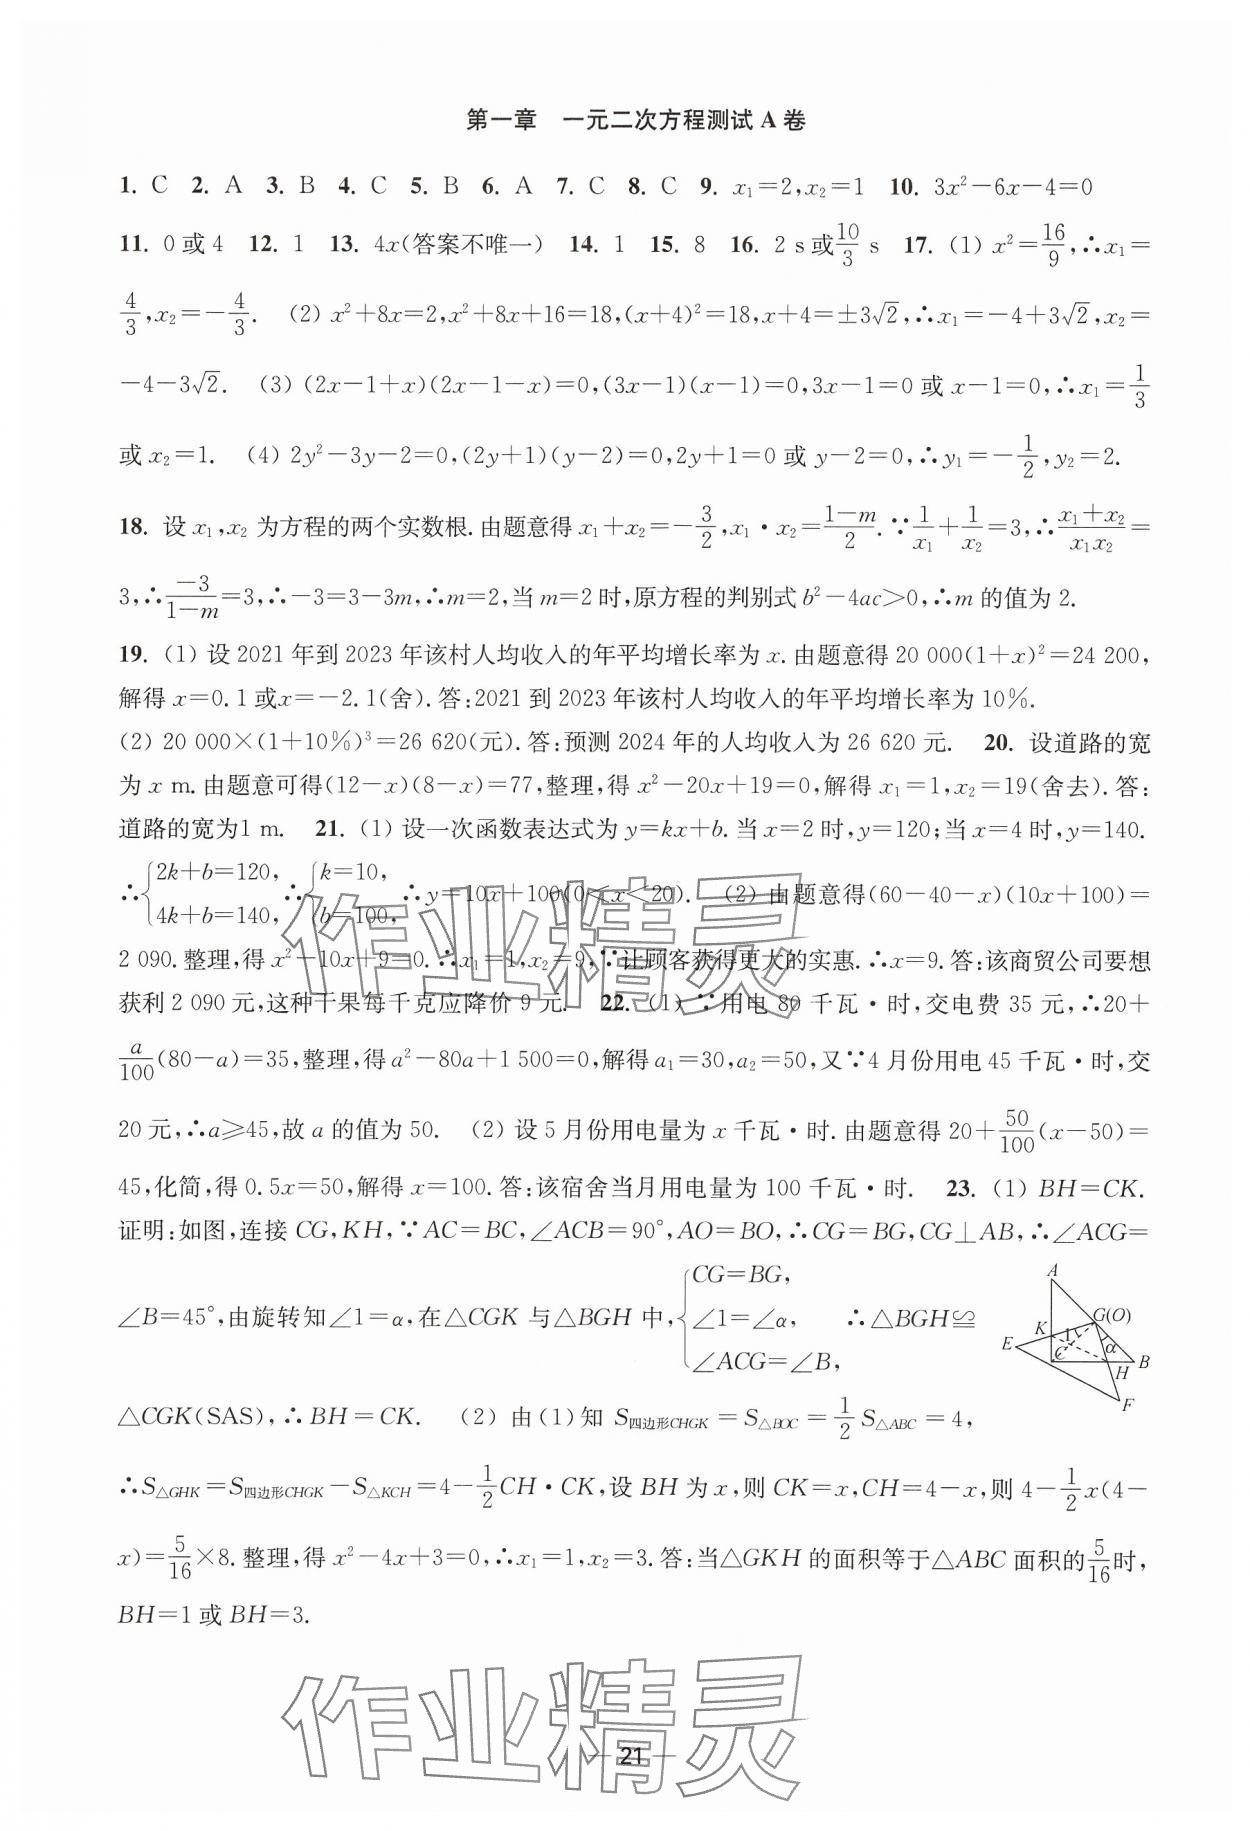 第一章　一元二次方程测试 A 卷
1. C 2. A 3. B 4. C 5. B 6. A 7. C 8. C 9. x₁=2,x₂=1 10. 3x²-6x-4=0
11. 0或4 12. 1 13. 4x(答案不唯一) 14. 1 15. 8 16. 2 s或10/3 s 17. (1) x²=16/9,∴x₁=
4/3,x₂=-4/3. (2) x²+8x=2,x²+8x+16=18,(x+4)²=18,x+4=±3√2,∴x₁=-4+3√2,x₂=
-4-3√2. (3) (2x-1+x)(2x-1-x)=0,(3x-1)(x-1)=0,3x-1=0 或 x-1=0,∴x₁=1/3
或 x₂=1. (4) 2y²-3y-2=0,(2y+1)(y-2)=0,2y+1=0 或 y-2=0,∴y₁=-1/2,y₂=2.
18. 设 x₁,x₂ 为方程的两个实数根.由题意得 x₁+x₂=-3/2,x₁·x₂=(1-m)/2.∵1/x₁+1/x₂=3,∴(x₁+x₂)/(x₁x₂)=
3,∴-3/(1-m)=3,∴-3=3-3m,∴m=2,当 m=2 时,原方程的判别式 b²-4ac>0,∴m 的值为 2.
19. (1) 设 2021 年到 2023 年该村人均收入的年平均增长率为 x.由题意得 20 000(1+x)²=24 200,
解得 x=0.1 或x=-2.1(舍).答:2021 到 2023 年该村人均收入的年平均增长率为 10%.
(2) 20 000×(1+10%)³=26 620(元).答:预测 2024 年的人均收入为 26 620 元. 20. 设道路的宽
为 x m.由题意可得(12-x)(8-x)=77,整理,得 x²-20x+19=0,解得 x₁=1,x₂=19(舍去).答:
道路的宽为1 m. 21. (1) 设一次函数表达式为 y=kx+b.当 x=2 时,y=120;当 x=4 时,y=140.
∴{2k+b=120, 4k+b=140,∴{k=10, b=100,∴y=10x+100(0<x<20). (2) 由题意得(60-40-x)(10x+100)=
2 090.整理,得 x²-10x+9=0.∴x₁=1,x₂=9,∵让顾客获得更大的实惠.∴x=9.答:该商贸公司要想
获利 2 090 元,这种干果每千克应降价 9 元. 22. (1) ∵用电 80 千瓦·时,交电费 35 元,∴20+
a/100(80-a)=35,整理,得 a²-80a+1 500=0,解得 a₁=30,a₂=50,又∵4 月份用电 45 千瓦·时,交
20 元,∴a≥45,故 a 的值为 50. (2) 设 5 月份用电量为 x 千瓦·时.由题意得 20+50/100(x-50)=
45,化简,得 0.5x=50,解得 x=100.答:该宿舍当月用电量为 100 千瓦·时. 23. (1) BH=CK.
证明:如图,连接 CG,KH,∵AC=BC,∠ACB=90°,AO=BO,∴CG=BG,CG⊥AB,∴∠ACG=
∠B=45°,由旋转知∠1=α,在△CGK 与△BGH 中,{CG=BG, ∠1=∠α, ∠ACG=∠B, ∴△BGH≌
A
G(O)
K
1
E
C
α
B
H
F
△CGK(SAS),∴BH=CK. (2) 由(1)知 S四边形CHGK=S△BOC=1/2 S△ABC=4,
∴S△GHK=S四边形CHGK-S△KCH=4-1/2CH·CK,设 BH 为 x,则 CK=x,CH=4-x,则 4-1/2x(4-
x)=5/16×8.整理,得 x²-4x+3=0,∴x₁=1,x₂=3.答:当△GKH 的面积等于△ABC 面积的5/16时,
BH=1 或 BH=3.
作业精灵
作业精灵
— 21 —